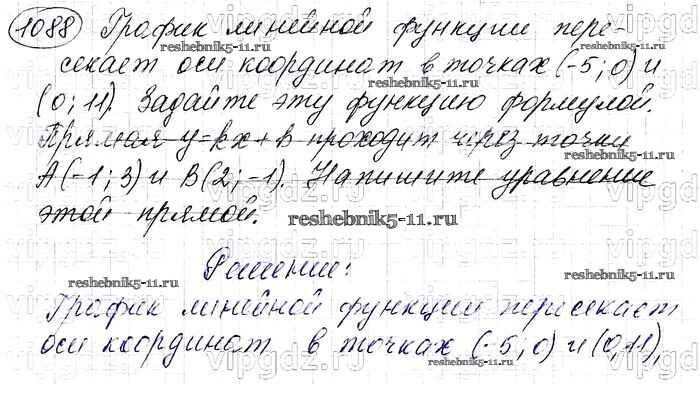 1088 График линейной функции пере-
секает оси координат в точках (-5; 0) и
(0; 11). Задайте эту функцию формулой.
Прямая y=kx+b проходит через точки
A(-1; 3) и B(2; -1). Напишите уравнение
этой прямой.
Решение:
График линейной функции пересекает
оси координат в точках (-5; 0) и (0, 11),
reshebnik5-11.ru
reshebnik5-11.ru
reshebnik5-11.ru
reshebnik5-11.ru
reshebnik5-11.ru
reshebnik5-11.ru